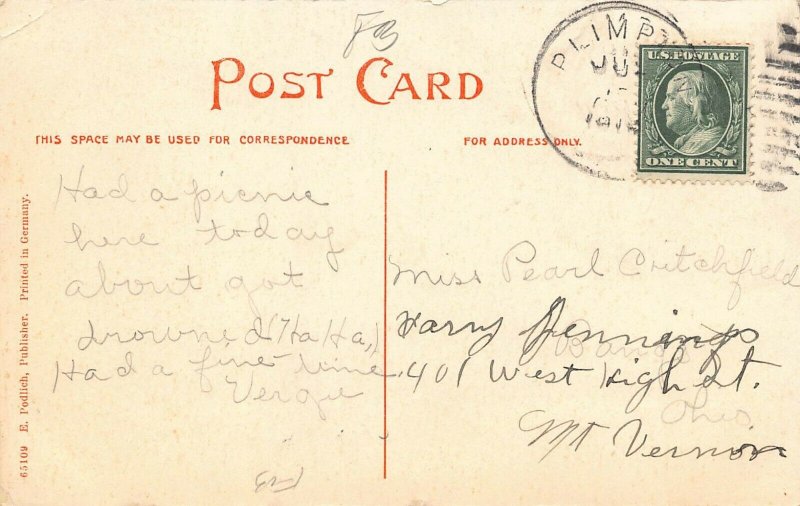 83
POST CARD
THIS SPACE MAY BE USED FOR CORRESPONDENCE
FOR ADDRESS ONLY.
PLIMP
JUL
U.S. POSTAGE
ONE CENT
Had a picnic
here today
about got
drowned (Ha Ha,)
Had a fine time
Vergie
Miss Pearl Critchfield
Harry Jennings
401 West High St.
Ohio
Mt Vernon
65109 E. Podlich, Publisher. Printed in Germany.